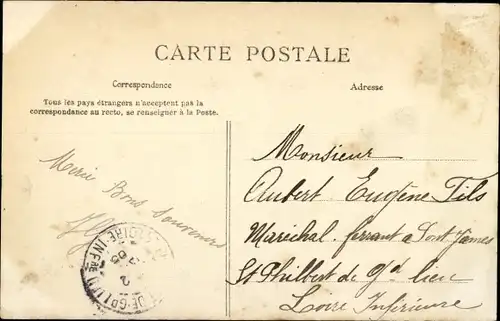 CARTE POSTALE
Correspondance
Adresse
Tous les pays étrangers n'acceptent pas la
correspondance au recto, se renseigner à la Poste.
Merci Bons Souvenirs
Monsieur
Aubert Eugène Fils
Maréchal ferrant a Pont James
St Philbert de Gd lieu
Loire Inférieure
LOIRE-INFRE